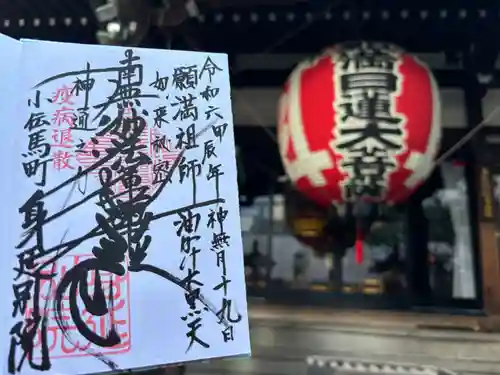 令和六甲辰年 神無月十九日
願満祖師 油かけ大黒天
如来秘密
南無妙法蓮華経
神通之力
疫病退散
小伝馬町 身延別院
満日蓮大菩薩